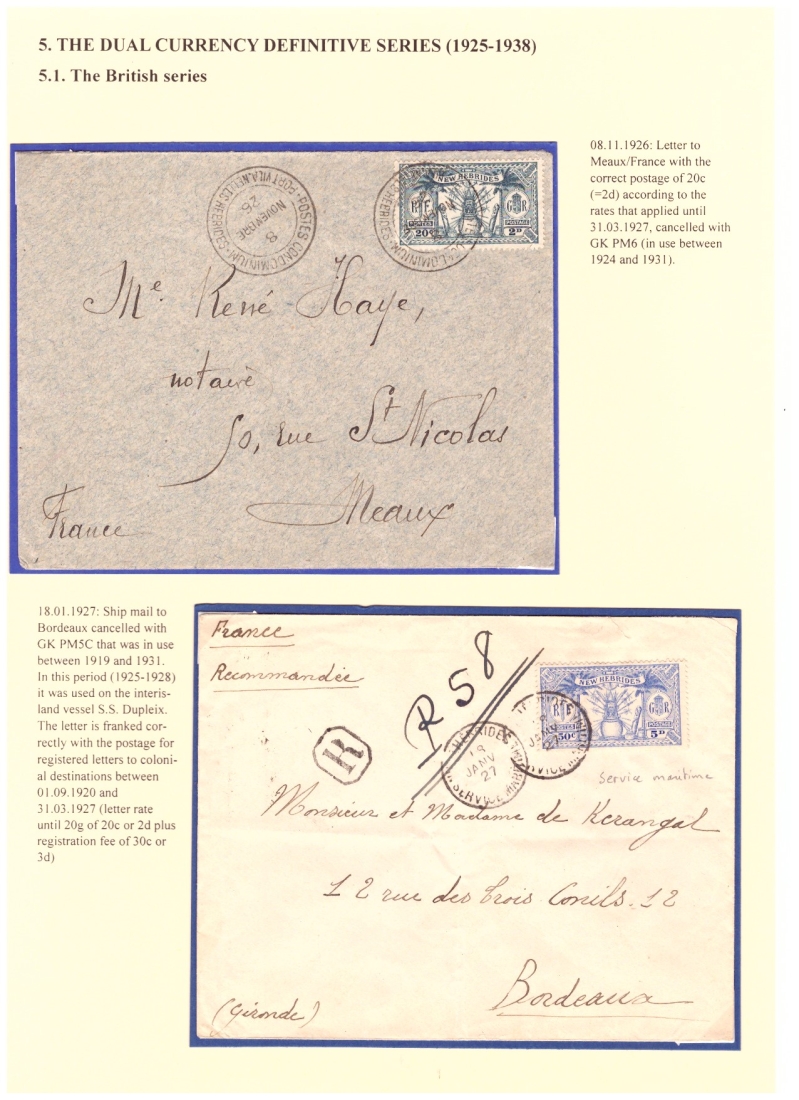 5. THE DUAL CURRENCY DEFINITIVE SERIES (1925-1938)
5.1. The British series
08.11.1926: Letter to
Meaux/France with the
correct postage of 20c
(=2d) according to the
rates that applied until
31.03.1927, cancelled with
GK PM6 (in use between
1924 and 1931).
POSTES CONDOMINIUM
PORT VILA, NELLES HEBRIDES
8
NOVEMBRE
26
NEW HEBRIDES
RF
GR
POSTES
POSTAGE
20c
2D
Me. René Haye,
notaire
50, rue St Nicolas
Meaux
France
18.01.1927: Ship mail to
Bordeaux cancelled with
GK PM5C that was in use
between 1919 and 1931.
In this period (1925-1928)
it was used on the interis-
land vessel S.S. Dupleix.
The letter is franked cor-
rectly with the postage for
registered letters to coloni-
al destinations between
01.09.1920 and
31.03.1927 (letter rate
until 20g of 20c or 2d plus
registration fee of 30c or
3d)
France
Recommandée
R 58
R
NEW HEBRIDES
RF
GR
POSTES
POSTAGE
50c
5D
HEBRIDES
18
JANV
27
SERVICE
18
JANV
27
SERVICE
Service maritime
Monsieur et Madame de Kerangal
12 rue des trois Conils. 12
Bordeaux
(Gironde)